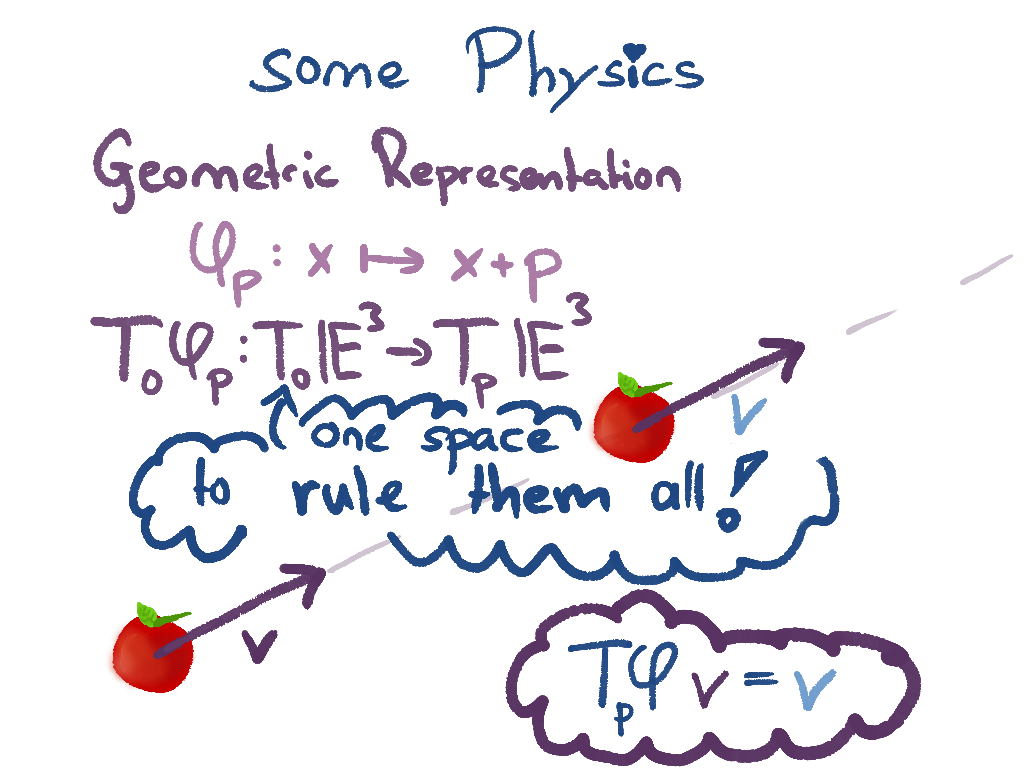 some Physics
Geometric Representation
φₚ : x ↦ x + p
T₀φₚ : T₀𝔼³ → Tₚ𝔼³
one space
to rule them all!
v
v
Tₚφ v = v